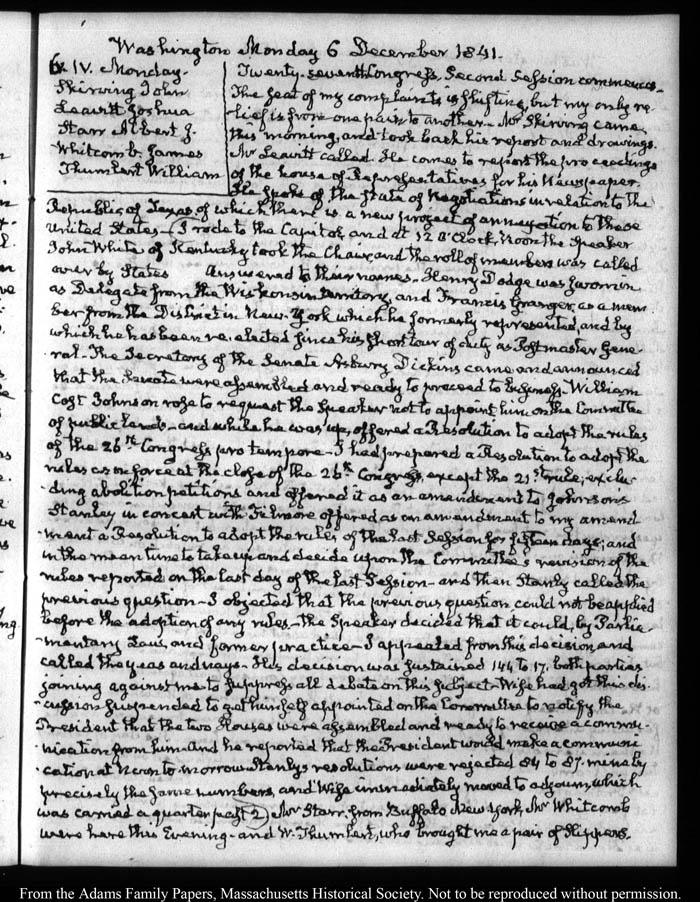 Washington Monday 6 December 1841.
6. IV. Monday.
Skirving John
Leavitt Joshua
Starr Albert J.
Whitcomb James
Thumlert William
Twenty-seventh Congress, Second Session commences.
The seat of my complaints is shifting, but my only re-
lief is from one pain to another. Mr Skirving came
this morning, and took back his report and drawings.
Mr Leavitt called. He comes to report the proceedings
of the house of Representatives for his Newspaper.
He spoke of the State of Negotiations in relation to the
Republic of Texas, of which there is a new project of annexation to these
United States— I rode to the Capitol, and at 12 O'Clock, Noon the Speaker
John White of Kentucky took the Chair, and the roll of members was called
over by States answered to their names. Henry Dodge was sworn in
as Delegate from the Wiskonsin territory, and Francis Granger, as a mem
ber from the District in New-York which he formerly represented, and by
which he has been re-elected since his short tour of duty as Postmaster Gene
ral. The Secretary of the Senate Asbury Dickins came and announced
that the Senate were assembled and ready to proceed to business. William
Cost Johnson rose to request the Speaker not to appoint him on the Committee
of public lands— and while he was up, offered a Resolution to adopt the rules
of the 26th Congress pro tempore— I had prepared a Resolution to adopt the
rules as in force at the close of the 26th Congress, except the 21st rule, exclu-
ding abolition petitions and offered it as an amendment to Johnson's
Stanley in concert with Filmore offered as an amendment to my amend
-ment a Resolution to adopt the rules of the last Session for fifteen days; and
in the mean time to take up and decide upon the Committee's revision of the
rules reported on the last day of the last Session— and then Stanly called the
previous question— I objected that the previous question could not be applied
before the adoption of any rules— the Speaker decided that it could, by Parlia-
-mentary Law, and former practice— I appealed from this decision and
called the yeas and nays— His decision was sustained 144 to 17. both parties
joining against me to suppress all debate on this subject— Wise had got this dis-
-cussion suspended to get himself appointed on the Committee to notify the
President that the two Houses were assembled and ready to receive a commu-
-nication from him— And he reported that the President would make a communi
-cation at Noon to-morrow— Stanly's resolutions were rejected 84 to 87. mine by
precisely the same numbers, and Wise immediately moved to adjourn, which
was carried a quarter past 2. Mr Starr, from Buffalo New York, Mr Whitcomb
were here this Evening— and W. Thumlert, who brought me a pair of slippers.
From the Adams Family Papers, Massachusetts Historical Society. Not to be reproduced without permission.